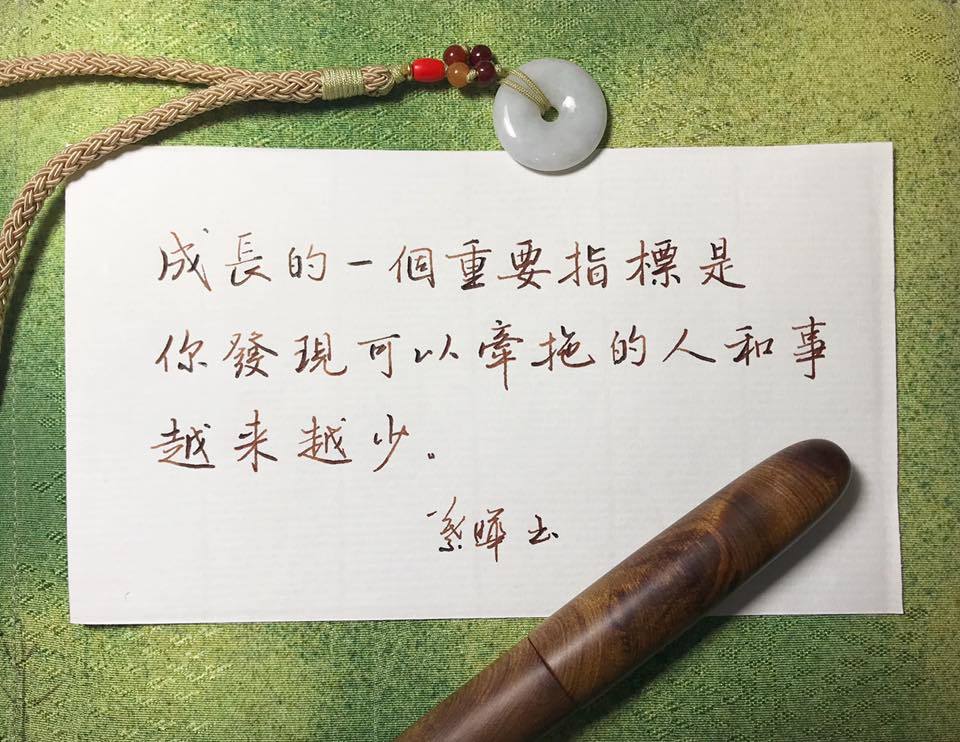 成長的一個重要指標是
你發現可以牽拖的人和事
越来越少。
暐书